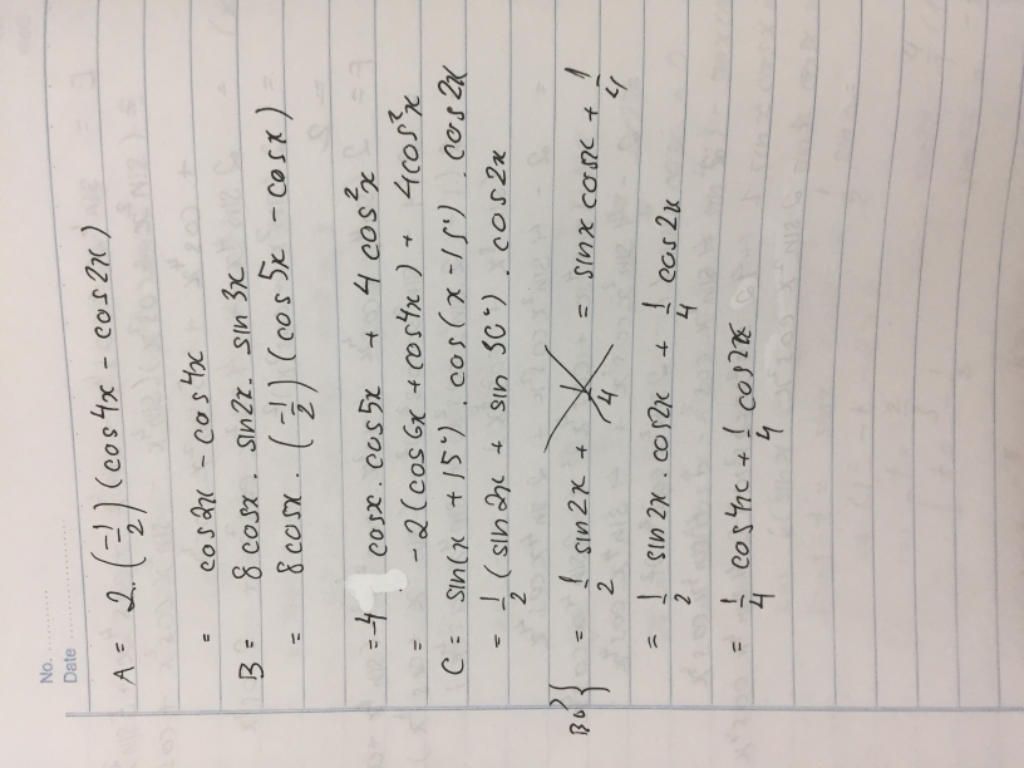 No. ..........
Date ....................
A = 2. (-1/2) (cos4x - cos2x)
= cos2x - cos4x
B = 8 cosx . sin2x. sin 3x
= 8 cosx . (-1/2) (cos 5x - cosx)
= -4 cosx. cos5x + 4 cos²x
= -2 (cos6x + cos4x) + 4cos²x
C = sin(x + 15°) . cos(x - 15°) . cos2x
= 1/2 (sin2x + sin 30°) . cos2x
Bỏ { = 1/2 sin2x + 1/4 = sinx cosx + 1/4
= 1/2 sin2x . cos2x + 1/4 cos2x
= 1/4 cos4x + 1/4 cos2x